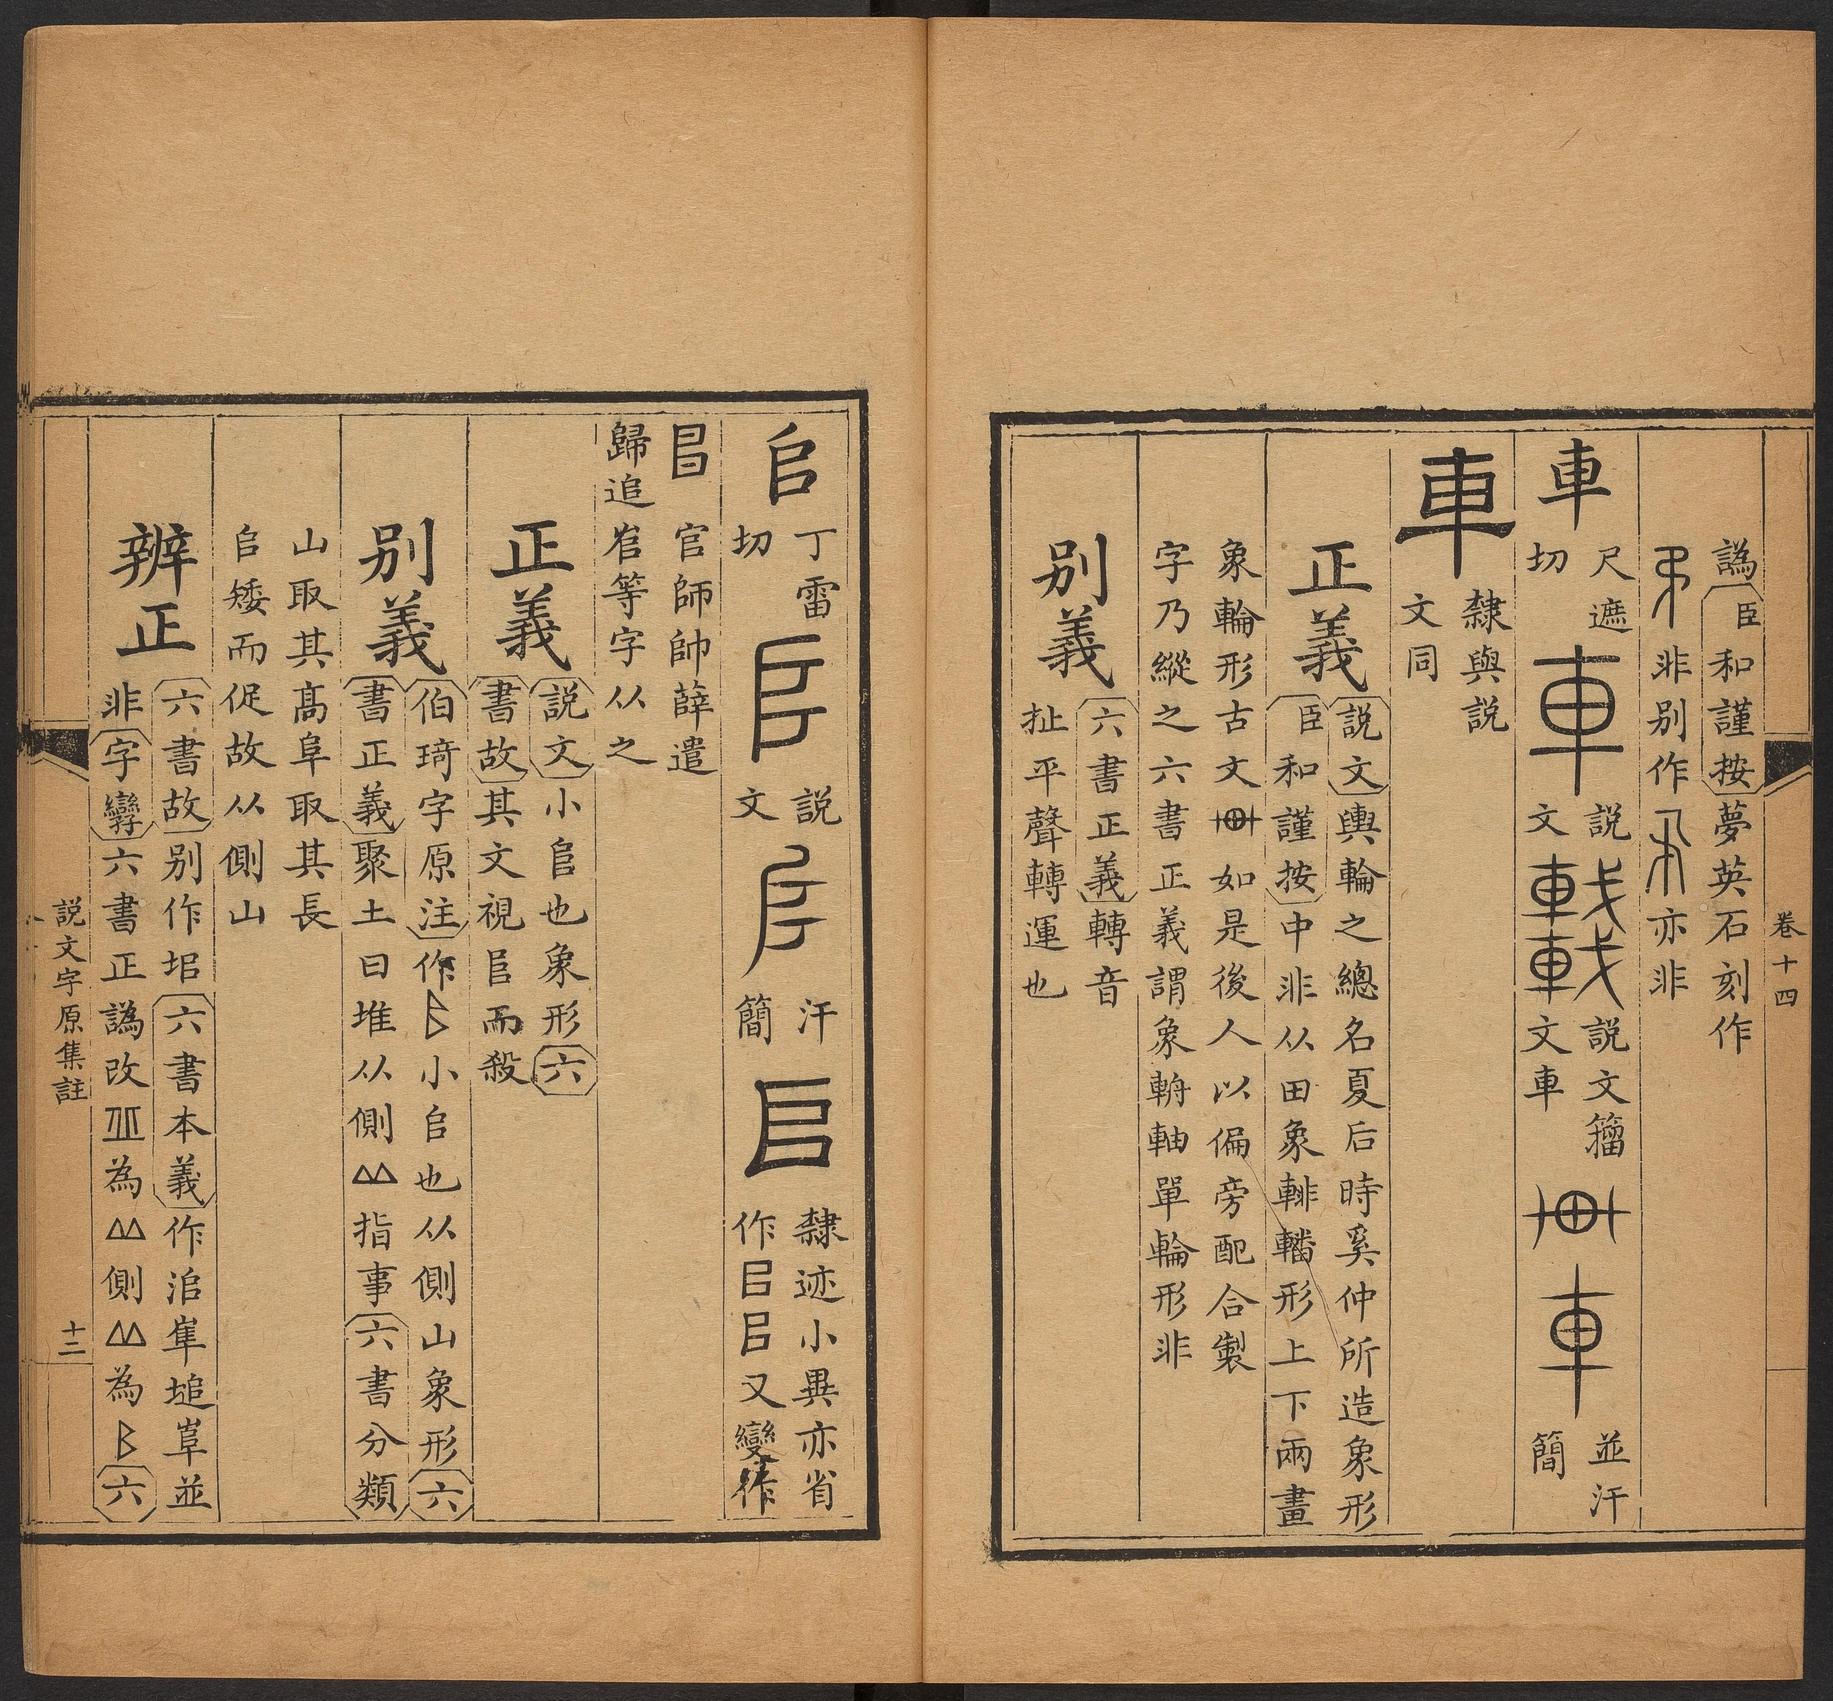 譌臣和謹按夢英石刻作
非別作
亦非
車
尺遮
切
說
文
說文籀
文車
並汗
簡
車
隸與說
文同
正義
說文輿輪之總名夏后時奚仲所造象形
臣和謹按中非从田象軿轓形上下兩畫
象輪形古文如是後人以偏旁配合製
字乃縱之六書正義謂象輈軸單輪形非
別義
六書正義轉音
扯平聲轉運也
卷十四
𠂤
丁雷
切
說
文
汗
簡
隸迹小異亦省
作㠯㠯又變作
官師帥薛遣
歸追㟴等字从之
正義
說文小𠂤也象形六
書故其文視𨸏而殺
別義
伯琦字原注作小𠂤也从側山象形六
書正義聚土曰堆从側指事六書分類
山取其高阜取其長
𠂤矮而促故从側山
辨正
六書故別作垖六書本義作㴙崔塠𡹐並
非字孿六書正譌改為側為六
說文字原集註
十二